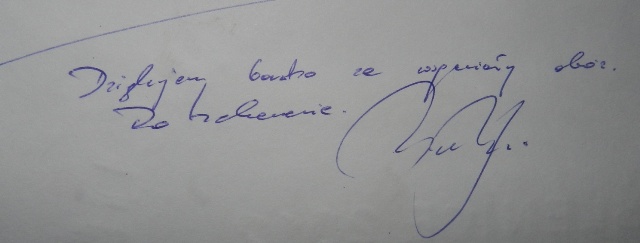 Dziękujemy bardzo za wspaniały obóz.
Do zobaczenia.